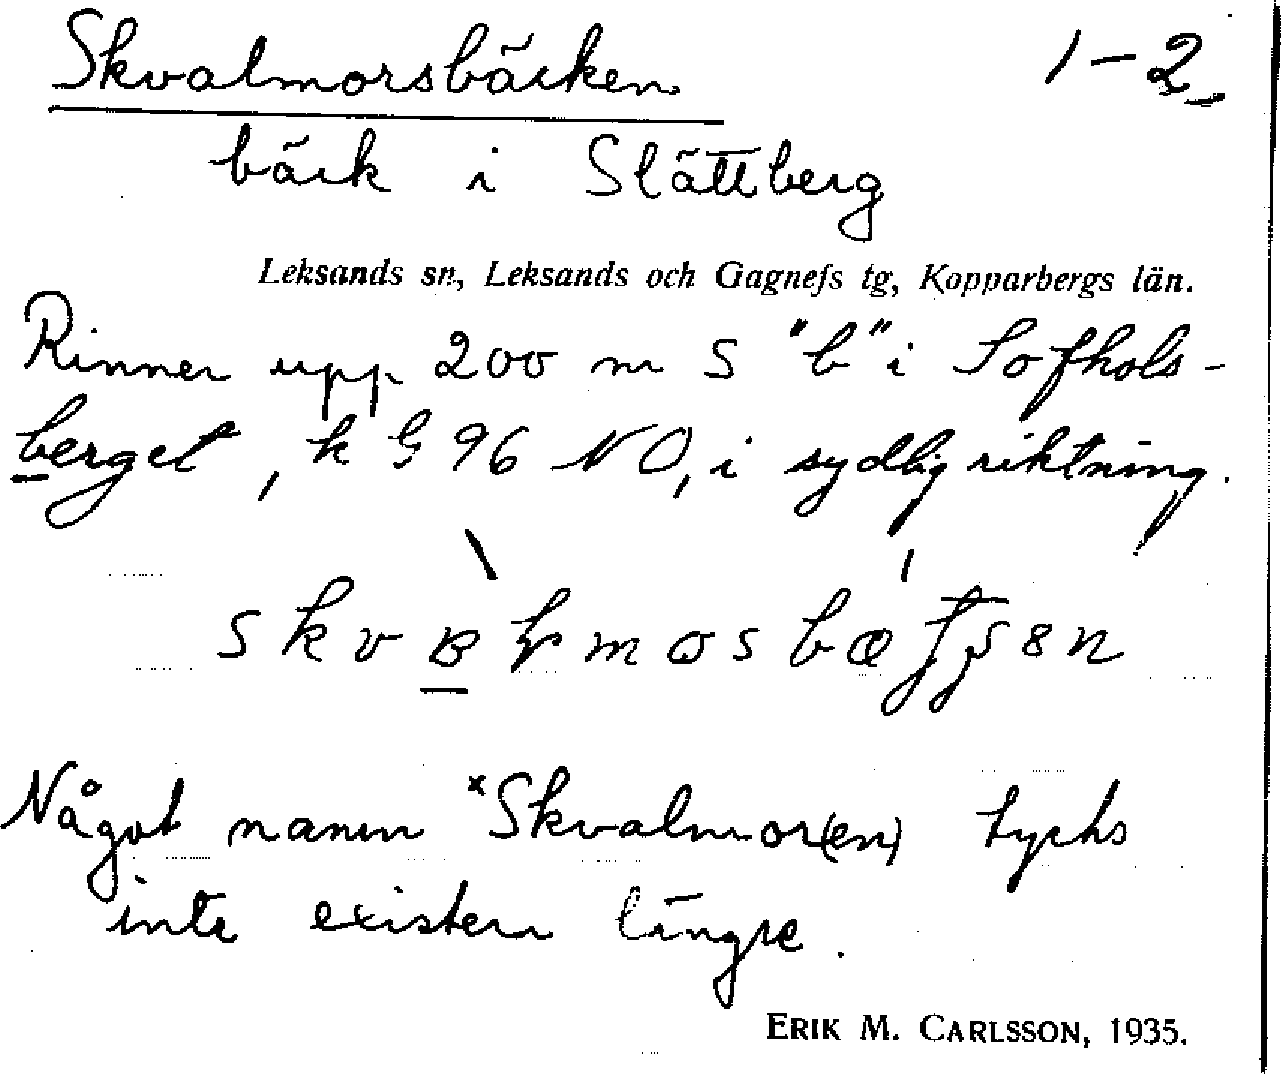 Skvalmorsbäcken 1-2
bäck i Slättberg
Leksands sn, Leksands och Gagnefs tg, Kopparbergs län.
Rinner upp 200 m S "b" i Sofhols-
berget, k G 96 NO, i sydlig riktning.
Något namn *Skvalmor(en) tycks
inte existera längre.
ERIK M. CARLSSON, 1935.